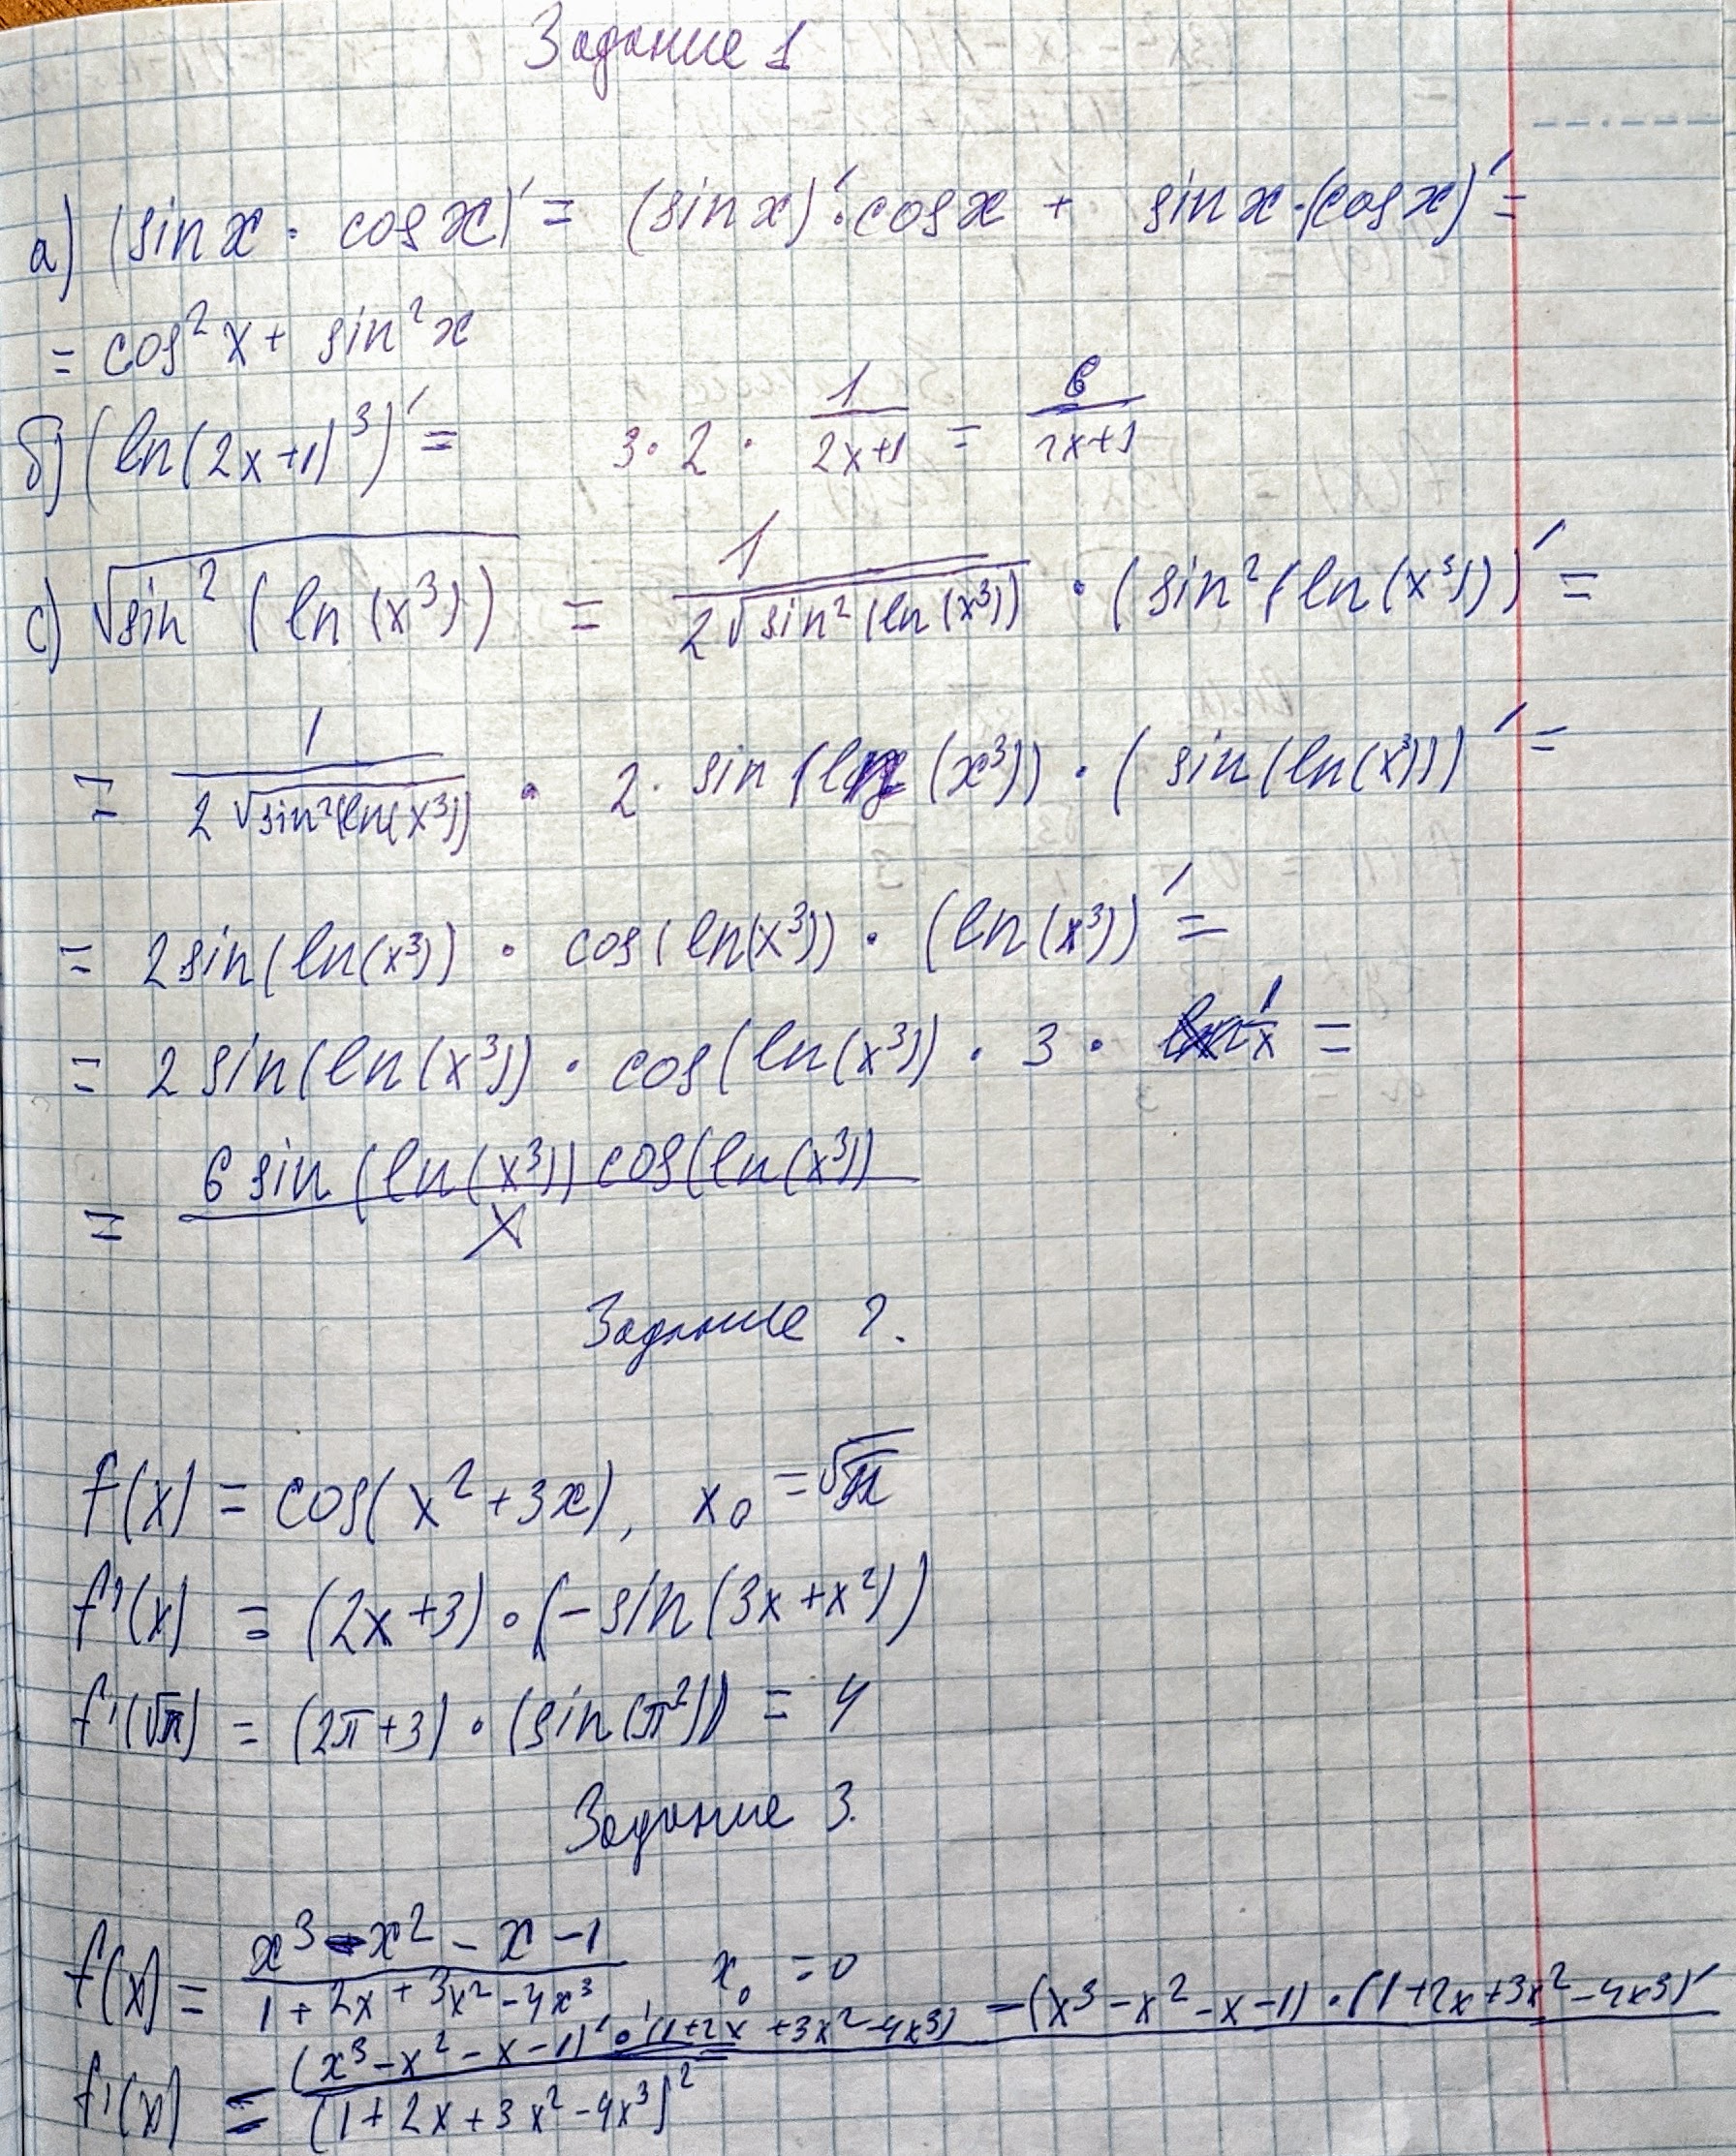 Задание 1
а) (sin x · cos x)' = (sin x)' · cos x + sin x · (cos x)' =
= cos² x + sin² x
б) (ln(2x+1)³)' = 3 · 2 · 1/(2x+1) = 6/(2x+1)
c) √(sin² (ln (x³))) = 1/(2√(sin² (ln (x³)))) · (sin² (ln (x³)))' =
= 1/(2√(sin²(ln(x³)))) · 2 · sin (ln (x³)) · (sin (ln(x³)))' =
= 2 sin(ln(x³)) · cos(ln(x³)) · (ln(x³))' =
= 2 sin(ln(x³)) · cos(ln(x³)) · 3 · 1/x =
= 6 sin (ln(x³)) cos(ln(x³)) / x
Задание 2.
f(x) = cos(x² + 3x), x₀ = √π
f'(x) = (2x+3) · (-sin(3x+x²))
f'(√π) = (2π+3) · (sin(π²)) = 4
Задание 3.
f(x) = (x³ - x² - x - 1)/(1 + 2x + 3x² - 4x³) x₀ = 0
f'(x) = ((x³ - x² - x - 1)' · (1+2x+3x²-4x³) - (x³ - x² - x - 1) · (1+2x+3x²-4x³)')/(1+2x+3x²-4x³)²